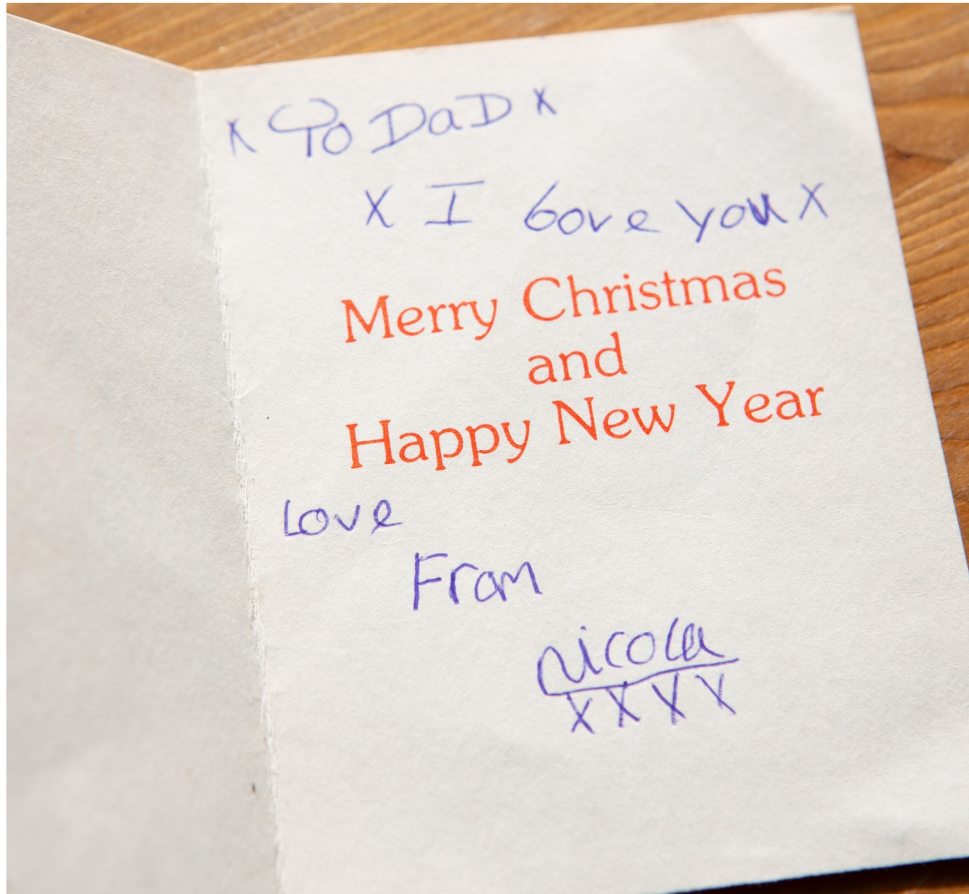 x To DaD x
x I love you x
Merry Christmas
and
Happy New Year
Love
From
nicola
x x x x